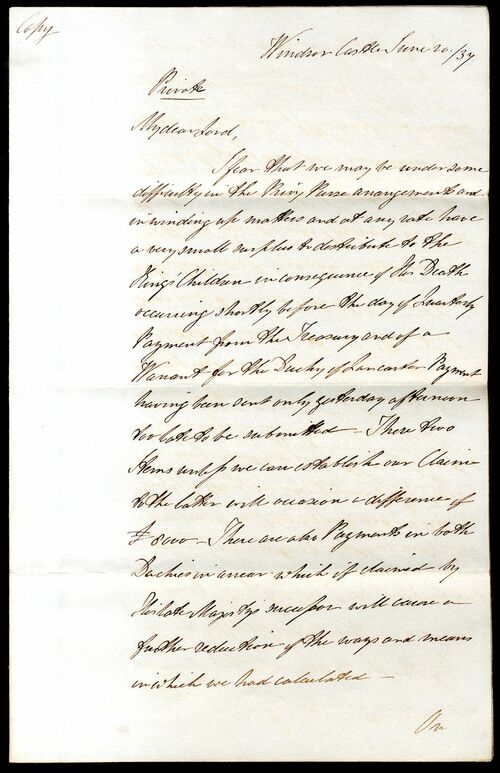 Copy
Windsor Castle June 20./37
Private
My dear Lord,
I fear that we may be under some
difficulty in the Privy Purse arrangements and
in winding up matters and at any rate have
a very small surplus to distribute to the
King's Children in consequence of His Death
occurring shortly before the day of Quarterly
Payment from the Treasury and of a
Warrant for the Duchy of Lancaster Payment
having been sent only yesterday afternoon
too late to be submitted – These two
Items unless we can establish our Claim
to the latter will occasion a difference of
£ 8000 – There are also Payments in both
Duchies in arrear which if claimed by
His late Majesty's successor will cause a
further reduction of the ways and means
in which we had calculated –
On